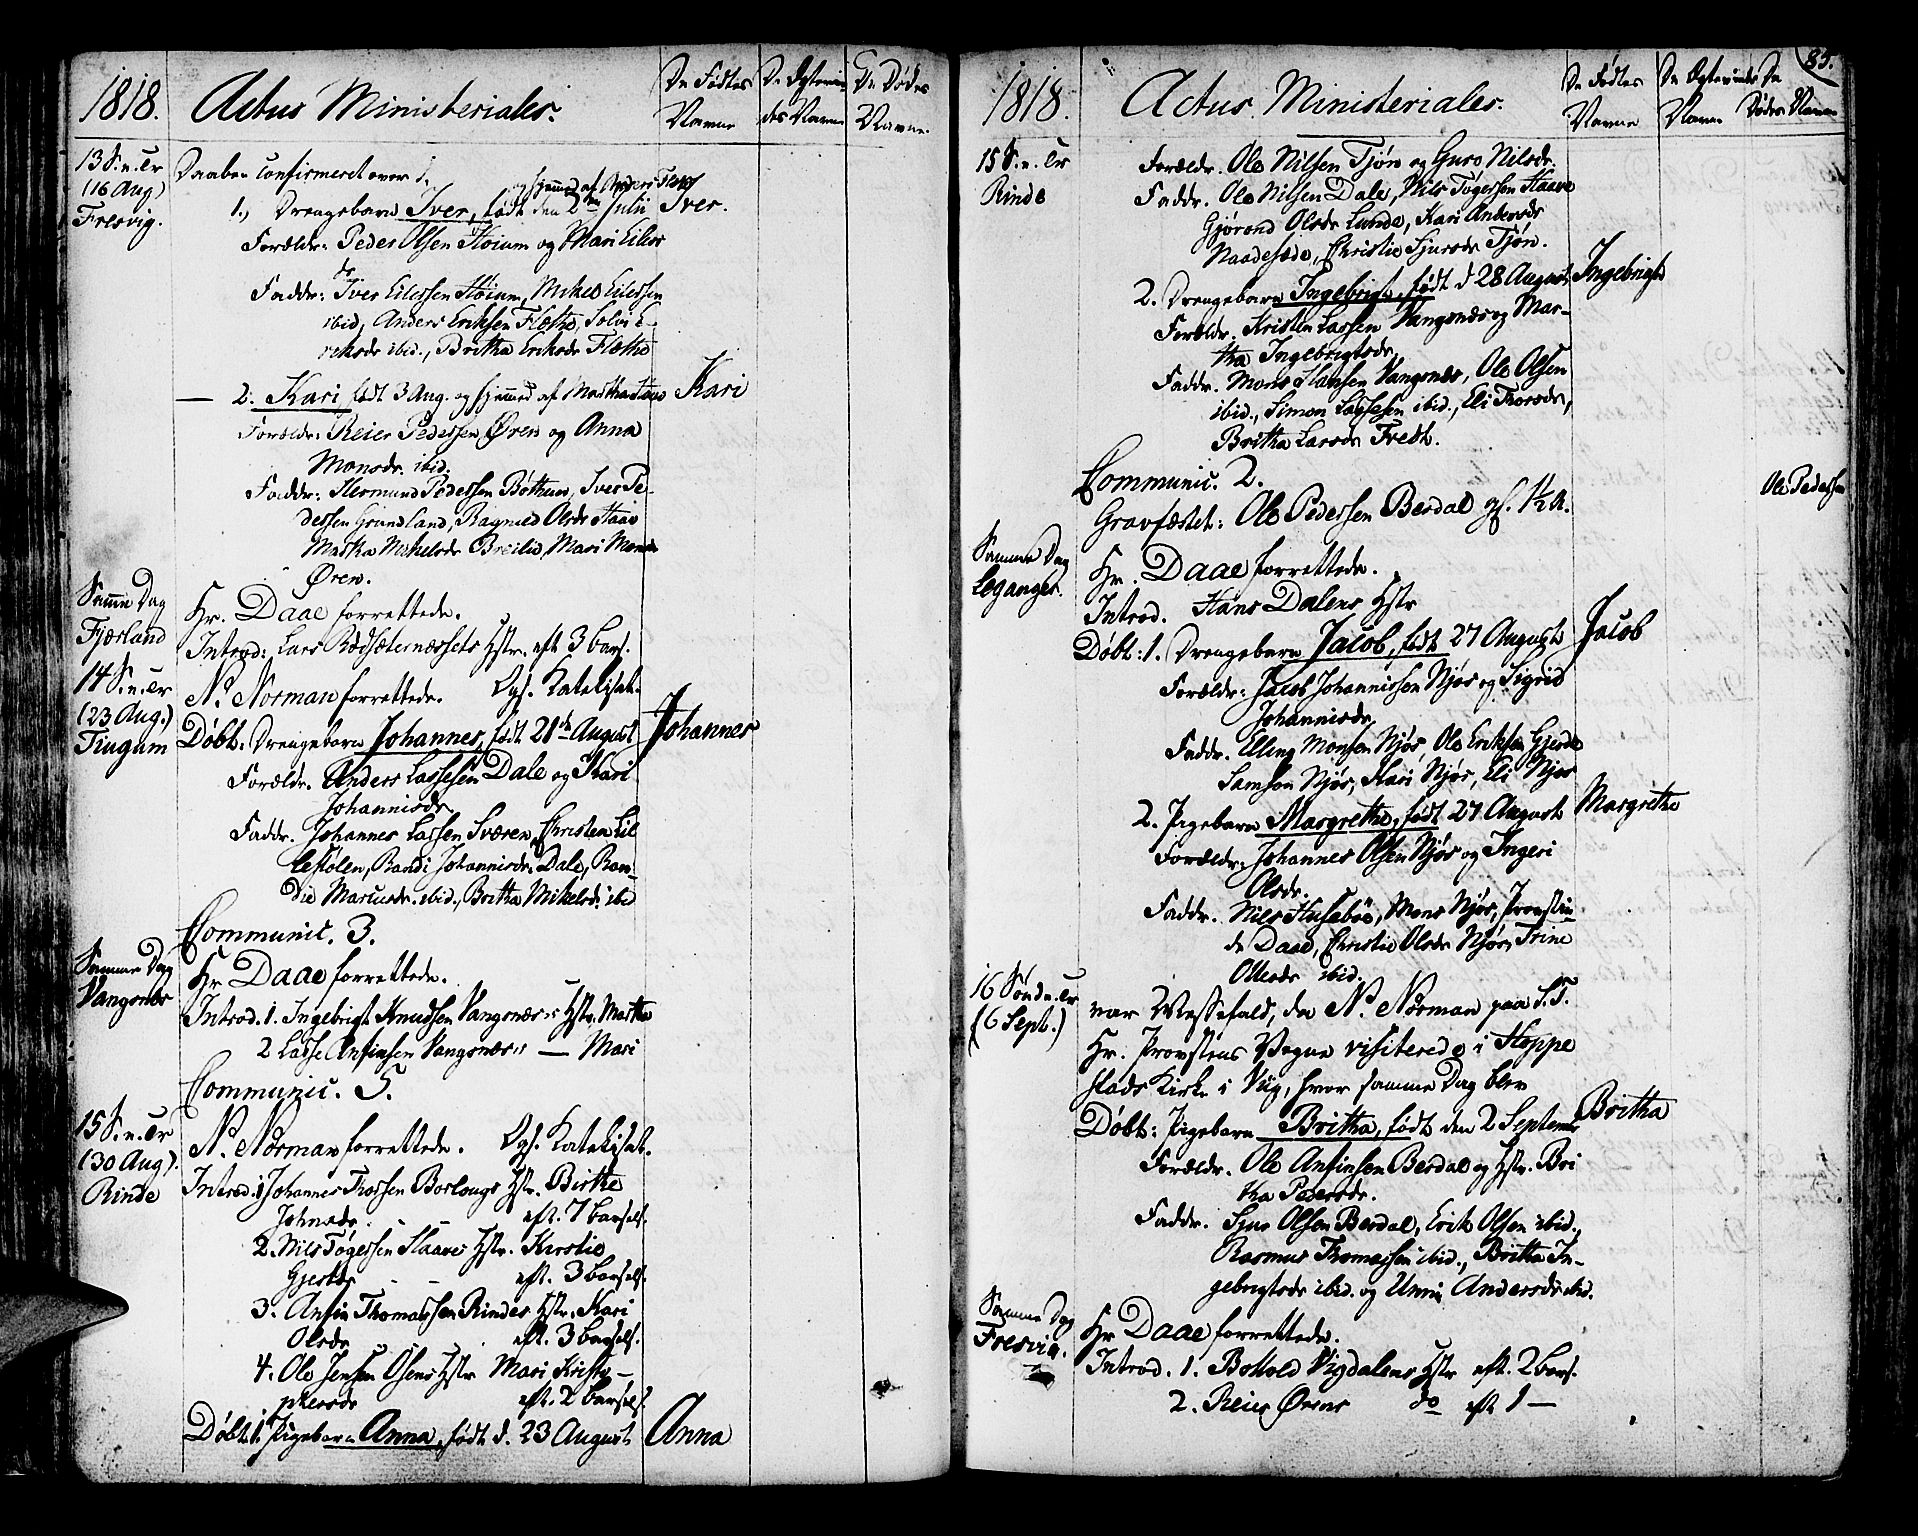 1818. Actus Ministeriales. De Fødtes Navne De Ægtevies- des Navne De Dødes Navne.
13 S. n. Tr. (16 Aug) Fresvig.
Daaben confirmeret over
og hjemmed. af Anders Flete
1., Drengebarn Iver, født den 2den Julii Iver.
Forældr: Peder Olsen Høium og Mari Eilers
dr
Faddr: Iver Eilersen Høium, Mikel Eilersen
ibid, Anders Eriksen Flethe, Solvi E-
riksdr ibid., Britha Eriksdr Flethe
— 2. Kari, født 3 Aug. og hjemmed. af Martha Kari
Forældr: Reier Pedersen Øren og Anna
Monsdr. ibid.
Faddr: Hermund Pedersen Bøthun, Iver Pe-
dersen Grundland, Ragnild Olsdr Haav
Martha Mikelsdr Breilie, Mari Monsdr
Øren.
Samme Dag Fjærland
Hr. Daae forrettede.
Introd: Lars Rødsæternæssets Hstr. eft 3 bars.
14 S. n. Tr (23 Aug.) Tiugum
N. Norman forrettede. Ogs. Katekisat.
Døbt: Drengebarn Johannes, født 21de August Johannes
Forældr. Anders Lassesen Dale og Kari
Johannisdr
Faddr. Johannes Lassen Sværen, Christen Lil
lestølen, Randi Johannisdr: Dale, Ran-
die Mariusdr. ibid., Britha Mikelsd: ibid
Communic. 3.
Samme Dag Vangsnæs
Hr Daae forrettede.
Introd. 1. Ingebrigt Knudsen Vangsnæs's Hstr. Martha
2 Lasse Anfinsen Vangsnæs's — Mari
Communic. 5.
15 S. n. Tr (30 Aug). Rinde
N. Norman forrettede. Ogs. Katekisat.
Introd. 1 Johannes Trossen Borlougs Hstr. Birthe
Johnsdr. eft. 7 barsels.
2. Nils Tøgersen Haaves Hstr. Kirstie
Gjertsdr eft. 3 barsels.
3. Anfin Thomassen Rindes Hstr. Kari
Olsdr eft. 3 barsels.
4. Ole Jensen Osens Hstr Mari Kristo-
phersdr eft. 2 barsels.
Døbt 1. Pigebarn Anna, født d. 23 August Anna
85.
1818. Actus Ministeriales. De Fødtes Navne De Ægteviedes Navne De Dødes Navne
15 S. n. Tr Rinde
Forældr. Ole Nilsen Tjøn og Guro Nilsdr.
Faddr. Ole Nilsen Dale, Nils Tøgersen Haave
Gjørond Olsdr Lunde, Kari Andersdr
Naadesæde, Christie Sjursdr Tjøn.
2. Drengebarn Ingebrigt, født d 28 August Ingebrigt
Forældr. Kristen Lassen Vangsnæs og Mar-
tha Ingebrigtsdr
Faddr. Mons Hansen Vangsnæs, Ole Olsen
ibid., Simon Lassesen ibid., Eli Thorsdr,
Britha Larsdr Fredt.
Communic. 2.
Gravfæstet: Ole Pedersen Berdal gl. ½ A. Ole Pedersen
Samme Dag Leganger.
Hr. Daae forrettede.
Introd. Hans Dalens Hstr
Døbt: 1. Drengebarn Jacob, født 27 August Jacob
Forældr: Jacob Johannissen Njøs og Sigrid
Johannisdr
Faddr. Elling Monsen Njøs, Ole Eriksen Gjerde
Samson Njøs, Kari Njøs, Eli Njøs
2. Pigebarn Margrethe, født 27 August Margrethe
Forældr: Johannes Olsen Njøs og Ingeri
Olsdr.
Faddr. Nils Husebøe, Mons Njøs, Provstin-
de Daae, Christie Olsdr Njøs, Trine
Ollesdr ibid.
16 Sønd n. Tr (6 Sept.)
var Messefald, da N. Norman paa S. T.
Hr. Provstens Vegne visiterede i Hoppe
stads Kirke i Viig, hvor samme Dag blev
Døbt: Pigebarn Britha, født den 2 September Britha
Forældr. Ole Anfinsen Berdal og Hstr. Bri
tha Pedersdr.
Faddr. Sjur Olsen Berdal, Erik Olsen ibid.
Rasmus Thomassen ibid., Britha In-
gebrigtsdr ibid. og Unni Andersdr ibid.
Samme Dag Fresvig.
Hr Daae forrettede.
Introd. 1. Bottold Vigdalens Hstr eft. 2 bars.
2. Reier Ørens do eft 1 —